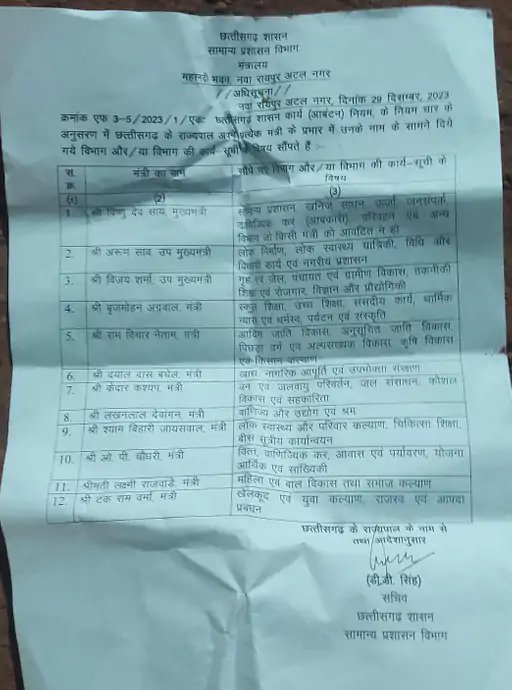 छत्तीसगढ़ शासन
सामान्य प्रशासन विभाग
मंत्रालय
महानदी भवन, नवा रायपुर अटल नगर
//अधिसूचना//
नवा रायपुर अटल नगर, दिनांक 29 दिसम्बर, 2023
क्रमांक एफ 3-5/2023/1/एक: छत्तीसगढ़ शासन कार्य (आबंटन) नियम, के नियम चार के
अनुसरण में छत्तीसगढ़ के राज्यपाल प्रत्येक मंत्री के प्रभार में उनके नाम के सामने दिये
गये विभाग और/या विभाग की कार्य-सूची के विषय सौंपते है :-
स. मंत्री का नाम सौंपे गए विभाग और/या विभाग की कार्य-सूची के
क्र. विषय
(1) (2) (3)
1. श्री विष्णु देव साय, मुख्यमंत्री सामान्य प्रशासन, खनिज साधन, ऊर्जा, जनसंपर्क,
वाणिज्यिक कर (आबकारी) परिवहन एवं अन्य
विभाग जो किसी मंत्री को आबंटित न हो
2. श्री अरूण साव, उप मुख्यमंत्री लोक निर्माण, लोक स्वास्थ्य यांत्रिकी, विधि और
विधायी कार्य एवं नगरीय प्रशासन
3. श्री विजय शर्मा, उप मुख्यमंत्री गृह एवं जेल, पंचायत एवं ग्रामीण विकास, तकनीकी
शिक्षा एवं रोजगार, विज्ञान और प्रौद्योगिकी
4. श्री बृजमोहन अग्रवाल, मंत्री स्कूल शिक्षा, उच्च शिक्षा, संसदीय कार्य, धार्मिक
न्यास एवं धर्मस्व, पर्यटन एवं संस्कृति
5. श्री राम विचार नेताम, मंत्री आदिम जाति विकास, अनुसूचित जाति विकास,
पिछड़ा वर्ग एवं अल्पसंख्यक विकास, कृषि विकास
एवं किसान कल्याण
6. श्री दयाल दास बघेल, मंत्री खाद्य, नागरिक आपूर्ति एवं उपभोक्ता संरक्षण
7. श्री केदार कश्यप, मंत्री वन एवं जलवायु परिवर्तन, जल संसाधन, कौशल
विकास एवं सहकारिता
8. श्री लखनलाल देवांगन, मंत्री वाणिज्य और उद्योग एवं श्रम
9. श्री श्याम बिहारी जायसवाल, मंत्री लोक स्वास्थ्य और परिवार कल्याण, चिकित्सा शिक्षा,
बीस सूत्रीय कार्यान्वयन
10. श्री ओ.पी. चौधरी, मंत्री वित्त, वाणिज्यिक कर, आवास एवं पर्यावरण, योजना
आर्थिक एवं सांख्यिकी
11. श्रीमती लक्ष्मी राजवाड़े, मंत्री महिला एवं बाल विकास तथा समाज कल्याण
12. श्री टंक राम वर्मा, मंत्री खेलकूद एवं युवा कल्याण, राजस्व एवं आपदा
प्रबंधन
छत्तीसगढ़ के राज्यपाल के नाम से
तथा आदेशानुसार
(डी.डी. सिंह)
सचिव
छत्तीसगढ़ शासन
सामान्य प्रशासन विभाग